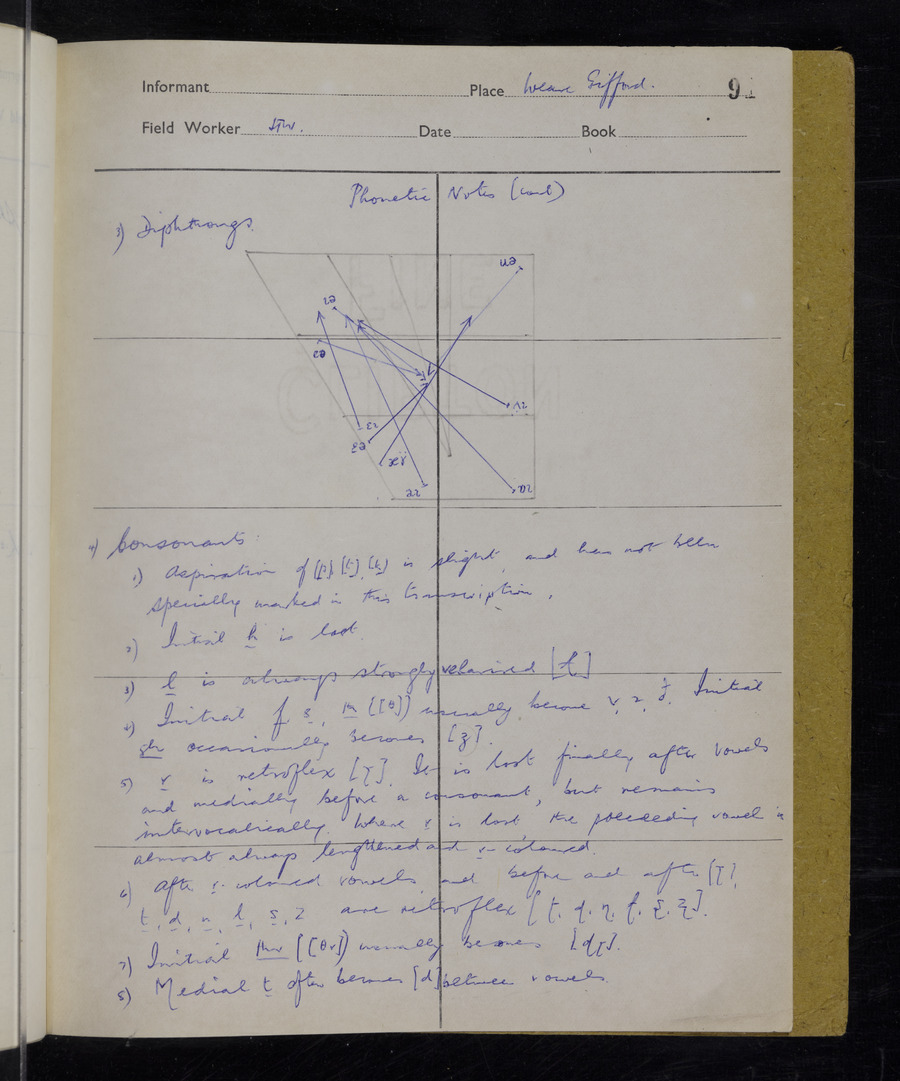 Informant Place Weare Gifford. 91
Field Worker STW. Date Book
Phonetic Notes (cont)
3) Diphthongs.
4) Consonants:
1) Aspiration of [p], [t], [k] is slight and has not been
specially marked in this transcription.
2) Initial h is lost.
3) l is always strongly velarised [ɫ]
4) Initial f, s, th ([θ]) usually become v, z, ð. Initial
sh occasionally becomes [ʒ].
5) r is retroflex [ɻ]. It is lost finally after vowels
and medially before a consonant, but remains
intervocalically. Where r is lost, the preceding vowel is
almost always lengthened and r-coloured.
6) After r-coloured vowels, and before and after [ɻ],
t, d, n, l, s, z are retroflex
7) Initial thr ([θr]) usually becomes [dɻ].
8) Medial t often becomes [d] between vowels.